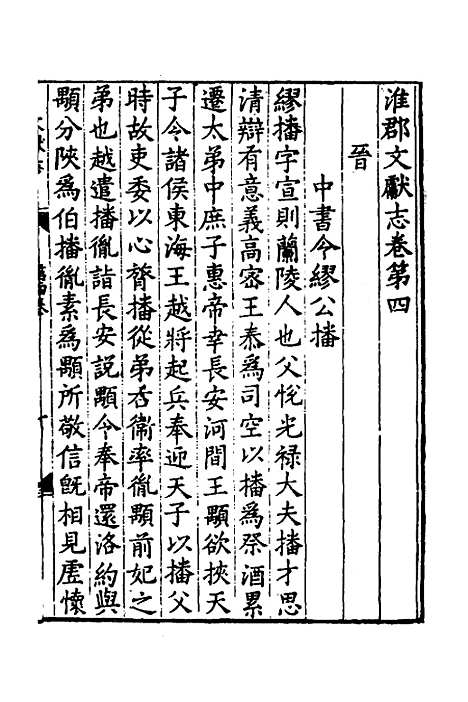 淮郡文獻志卷第四
晉
中書令繆公播
繆播字宣則蘭陵人也父悅光禄大夫播才思
清辯有意義高宻王泰爲司空以播爲祭酒累
遷太弟中庶子惠帝幸長安河間王顒欲挾天
子令諸侯東海王越將起兵奉迎天子以播父
時故吏委以心膂播從弟右衞率胤顒前妃之
弟也越遣播胤詣長安説顒令奉帝還洛約與
顒分陝爲伯播胤素爲顒所敬信旣相見虛懷